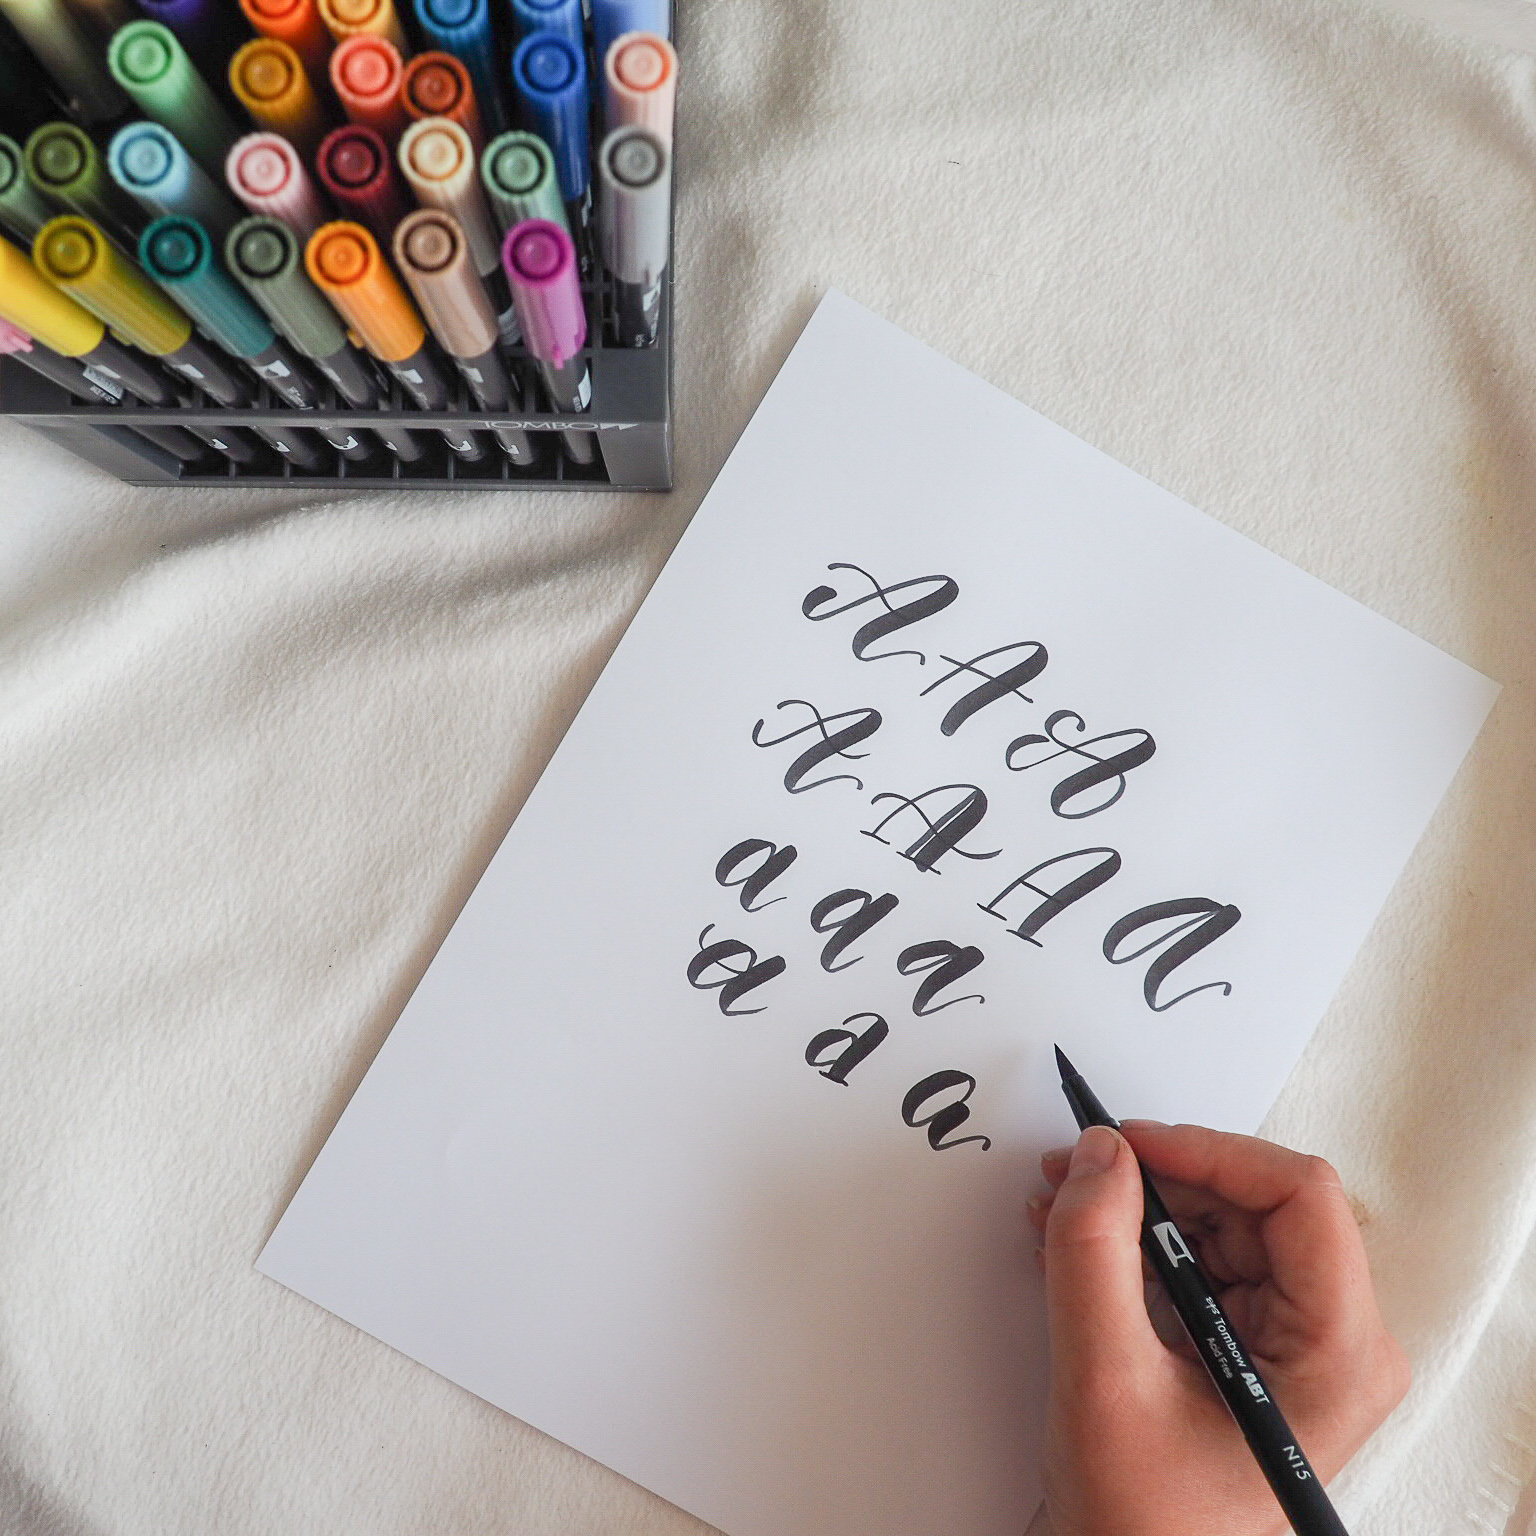 TOMBOW
A A A
A A A A
a a a
a a a
Tombow ABT
Acid Free
N15